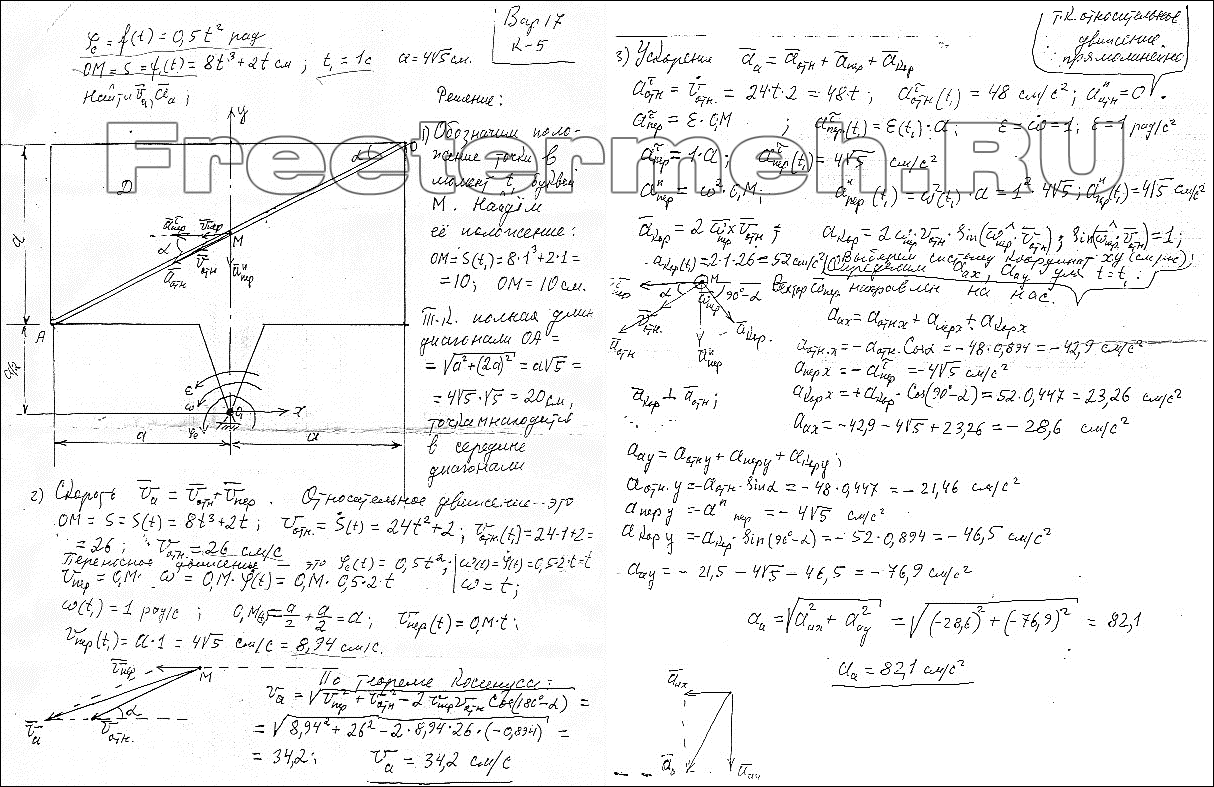 φₑ = f(t) = 0,5t² рад
OM = S = f(t) = 8t³+2t см ; t₁ = 1c a = 4√5 см.
Найти v̄ₐ, āₐ ;
Вар 17
К-5
Решение:
1) Обозначим поло-
жение точки в
момент t₁ буквой
М. Найдём
её положение:
OM = S(t₁) = 8·1³+2·1 =
= 10; OM = 10 см.
Т.к. полная длин
диагонали OA =
= √(a²+(2a)²) = a√5 =
= 4√5·√5 = 20 см,
точка М находится
в середине
диагонали
y
D
O
α
a
M
A
a/2
ε
ω
φₑ
O₁
x
a
a
2) Скорость v̄ₐ = v̄отн + v̄пер. Относительное движение - это
OM = S = S(t) = 8t³+2t ; vотн. = Ṡ(t) = 24t²+2 ; vотн(t₁) = 24·1+2 =
= 26 ; vотн = 26 см/с
Переносное движение - это φₑ(t) = 0,5t² ; ω(t) = φ̇(t) = 0,5·2·t = t
vпер = O₁M · ω = O₁M · φ̇(t) = O₁M · 0,5·2·t ω = t ;
ω(t₁) = 1 рад/с ; O₁M(t₁) = a/2 + a/2 = a ; vпер(t) = O₁M·t ;
vпер(t₁) = a·1 = 4√5 см/с = 8,94 см/с.
v̄пер
M
v̄ₐ
v̄отн.
α
По теореме косинуса:
vₐ = √(v²пер + v²отн − 2 vпер vотн Cos(180°−α)) =
= √(8,94² + 26² − 2·8,94·26·(−0,894)) =
= 34,2 ; vₐ = 34,2 см/с
Т.К. относительное
движение
прямолинейно
3) Ускорения āₐ = āотн + āпер + āкор
aᵗотн = v̇отн. = 24t·2 = 48t ; aᵗотн(t₁) = 48 см/с² ; aⁿотн = 0
aᵗпер = ε·O₁M ; aᵗпер(t₁) = ε(t₁)·a ; ε = ω̇ = 1 ; ε = 1 рад/с²
aᵗпер = 1·a ; aᵗпер(t₁) = 4√5 см/с²
aⁿпер = ω²·O₁M ; aⁿпер(t₁) = ω²(t₁)·a = 1²·4√5 ; aⁿпер(t₁) = 4√5 см/с²
āкор = 2 ω̄пер × v̄отн ; aкор = 2ωпер·vотн·Sin(ω̄пер^v̄отн) ; Sin(ω̄пер^v̄отн) = 1 ;
aкор(t₁) = 2·1·26 = 52 см/с² Выберем систему координат xy (см. рис) ;
Определим aₐₓ, aₐᵧ для t = t₁ :
Вектор ω̄пер направлен на нас.
M
α
90°−α
āотн
v̄отн.
āⁿпер
āкор.
āкор ⊥ āотн ;
aₐₓ = aотн x + aпер x + aкор x
aотн. x = −aотн. Cosα = −48·0,894 = −42,9 см/с²
aпер x = −aᵗпер = −4√5 см/с²
aкор x = +aкор · Cos(90°−α) = 52·0,447 = 23,26 см/с²
aₐₓ = −42,9 − 4√5 + 23,26 = −28,6 см/с²
aₐᵧ = aотн y + aпер y + aкор y ;
aотн. y = −aотн · Sinα = −48·0,447 = −21,46 см/с²
aпер y = −aⁿпер = −4√5 см/с²
aкор y = −aкор · Sin(90°−α) = −52·0,894 = −46,5 см/с²
aₐᵧ = −21,5 − 4√5 − 46,5 = −76,9 см/с²
aₐ = √(a²ₐₓ + a²ₐᵧ) = √((−28,6)² + (−76,9)²) = 82,1
aₐ = 82,1 см/с²
āₐₓ
āₐ
āₐᵧ
Freetermeh.RU